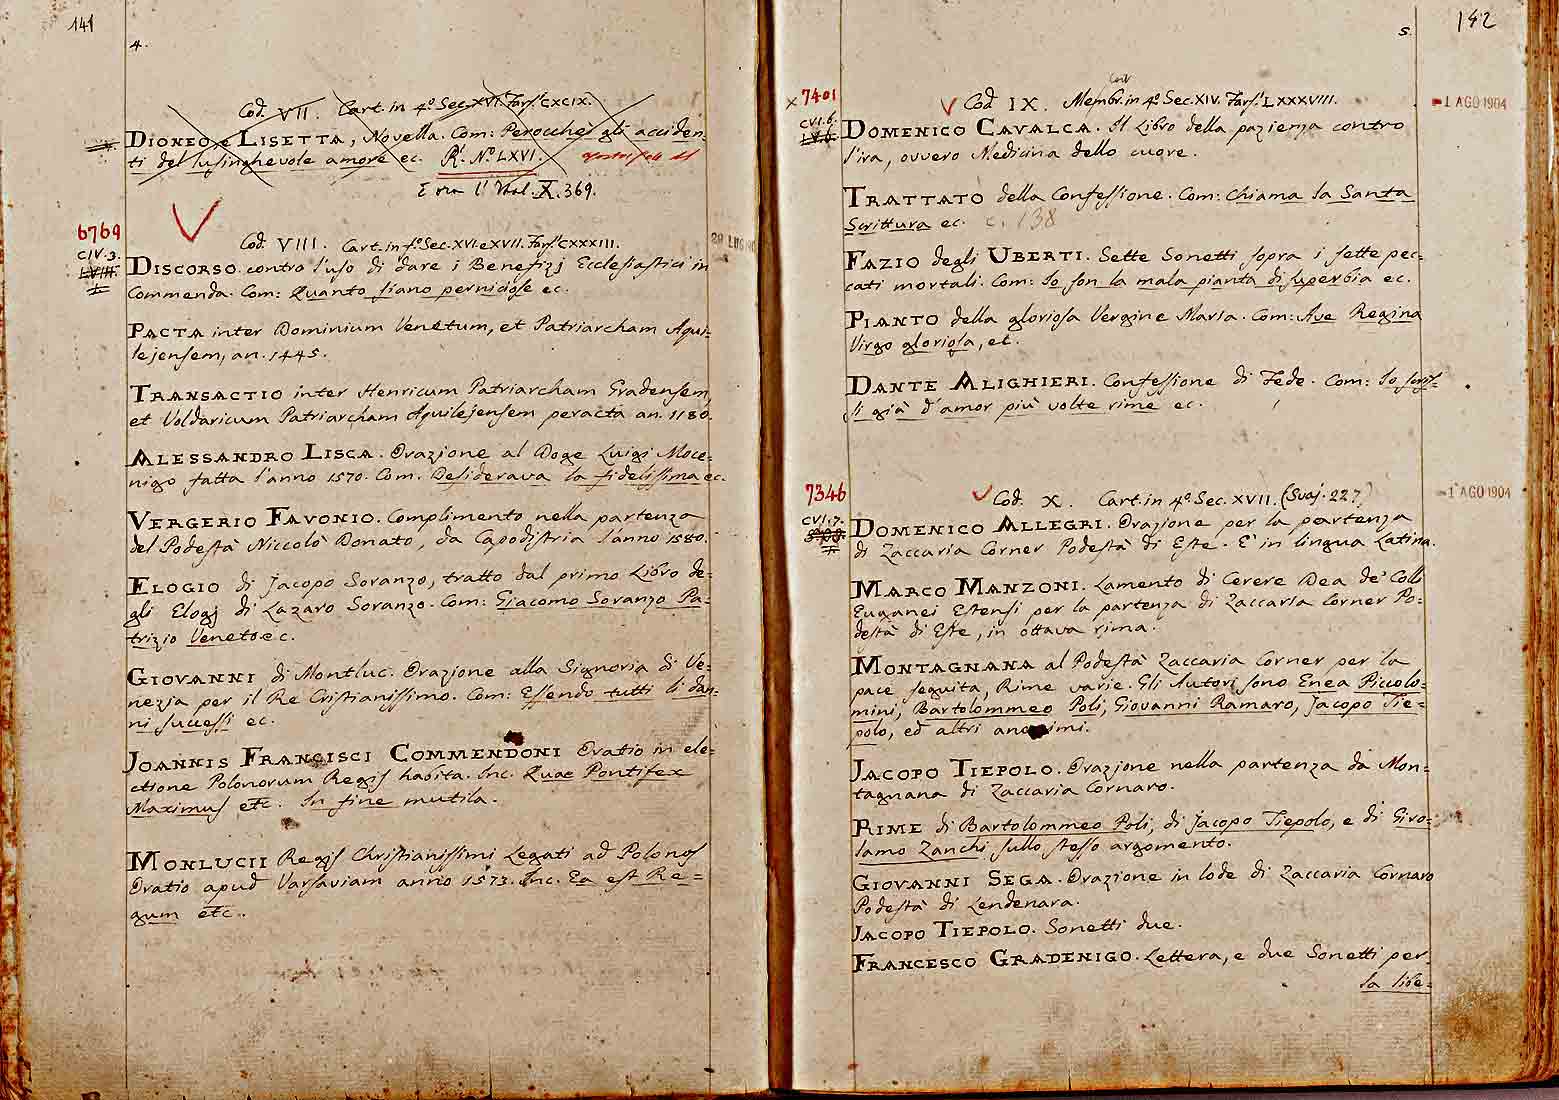 141
4.
Cod. VII. Cart. in 4º Sec. XVI. Fogl. CXCIX.
DIONEO e LISETTA, Novella. Com: Perocchè gli acciden-
ti del lusinghevole amore ec. R. Nº LXVI.
E ora l'Ital. X. 369.
6769
CIV. 3.
LVIII.
Cod. VIII. Cart. in fº Sec. XVI e XVII. Fogl. CXXXIII.
DISCORSO contro l'uso di dare i Benefizj Ecclesiastici in
Commenda. Com: Quanto siano perniciose ec.
PACTA inter Dominium Venetum, et Patriarcham Aqui-
lejensem, an. 1445.
TRANSACTIO inter Henricum Patriarcham Gradensem,
et Voldaricum Patriarcham Aquilejensem peracta an. 1180.
ALESSANDRO LISCA. Orazione al Doge Luigi Moce-
nigo fatta l'anno 1570. Com. Desiderava la fidelissima ec.
VERGERIO FAVONIO. Complimento nella partenza
del Podestà Niccolò Donato, da Capodistria l'anno 1580.
ELOGIO di Jacopo Soranzo, tratto dal primo Libro de-
gli Elogj di Lazaro Soranzo. Com: Giacomo Soranzo Pa-
trizio Veneto ec.
GIOVANNI di Montluc. Orazione alla Signoria di Ve-
nezia per il Re Cristianissimo. Com: Essendo tutti li dan-
ni successi ec.
JOANNIS FRANCISCI COMMENDONI Oratio in ele-
ctione Polonorum Regis habita. Inc. Quae Pontifex
Maximus etc. In fine mutila.
MONLUCII Regis Christianissimi Legati ad Polonos
Oratio apud Varsaviam anno 1573. Inc. Ea est Re-
gum etc.
142
5.
x 7401
CVI. 6.
Cod. IX. Membr. in 4º Sec. XIV. Fogl. LXXXVIII.
-1 AGO 1904
DOMENICO CAVALCA. Il Libro della pazienza contro
l'ira, ovvero Medicina dello cuore.
TRATTATO della Confessione. Com: Chiama la Santa
Scrittura ec. c. 138
FAZIO degli UBERTI. Sette Sonetti sopra i sette pec-
cati mortali. Com: Io son la mala pianta di superbia ec.
PIANTO della gloriosa Vergine Maria. Com: Ave Regina
Virgo gloriosa, et.
DANTE ALIGHIERI. Confessione di Fede. Com: Io scris-
si già d'amor più volte rime ec.
7346
CVI. 7.
Cod. X. Cart. in 4º Sec. XVII. (Svaj. 227)
-1 AGO 1904
DOMENICO ALLEGRI. Orazione per la partenza
di Zaccaria Corner Podestà di Este. E' in lingua Latina.
MARCO MANZONI. Lamento di Cerere Dea de' Colli
Euganei Estensi per la partenza di Zaccaria Corner Po-
destà di Este, in ottava rima.
MONTAGNANA al Podestà Zaccaria Corner per la
pace seguita, Rime varie. Gli Autori sono Enea Piccolo-
mini, Bartolommeo Poli, Giovanni Ramaro, Jacopo Tie-
polo, ed altri anonimi.
JACOPO TIEPOLO. Orazione nella partenza da Mon-
tagnana di Zaccaria Cornaro.
RIME di Bartolommeo Poli, di Jacopo Tiepolo, e di Giro-
lamo Zanchi sullo stesso argomento.
GIOVANNI SEGA. Orazione in lode di Zaccaria Cornaro
Podestà di Lendenara.
JACOPO TIEPOLO. Sonetti due.
FRANCESCO GRADENIGO. Lettera, e due Sonetti per
la libe-